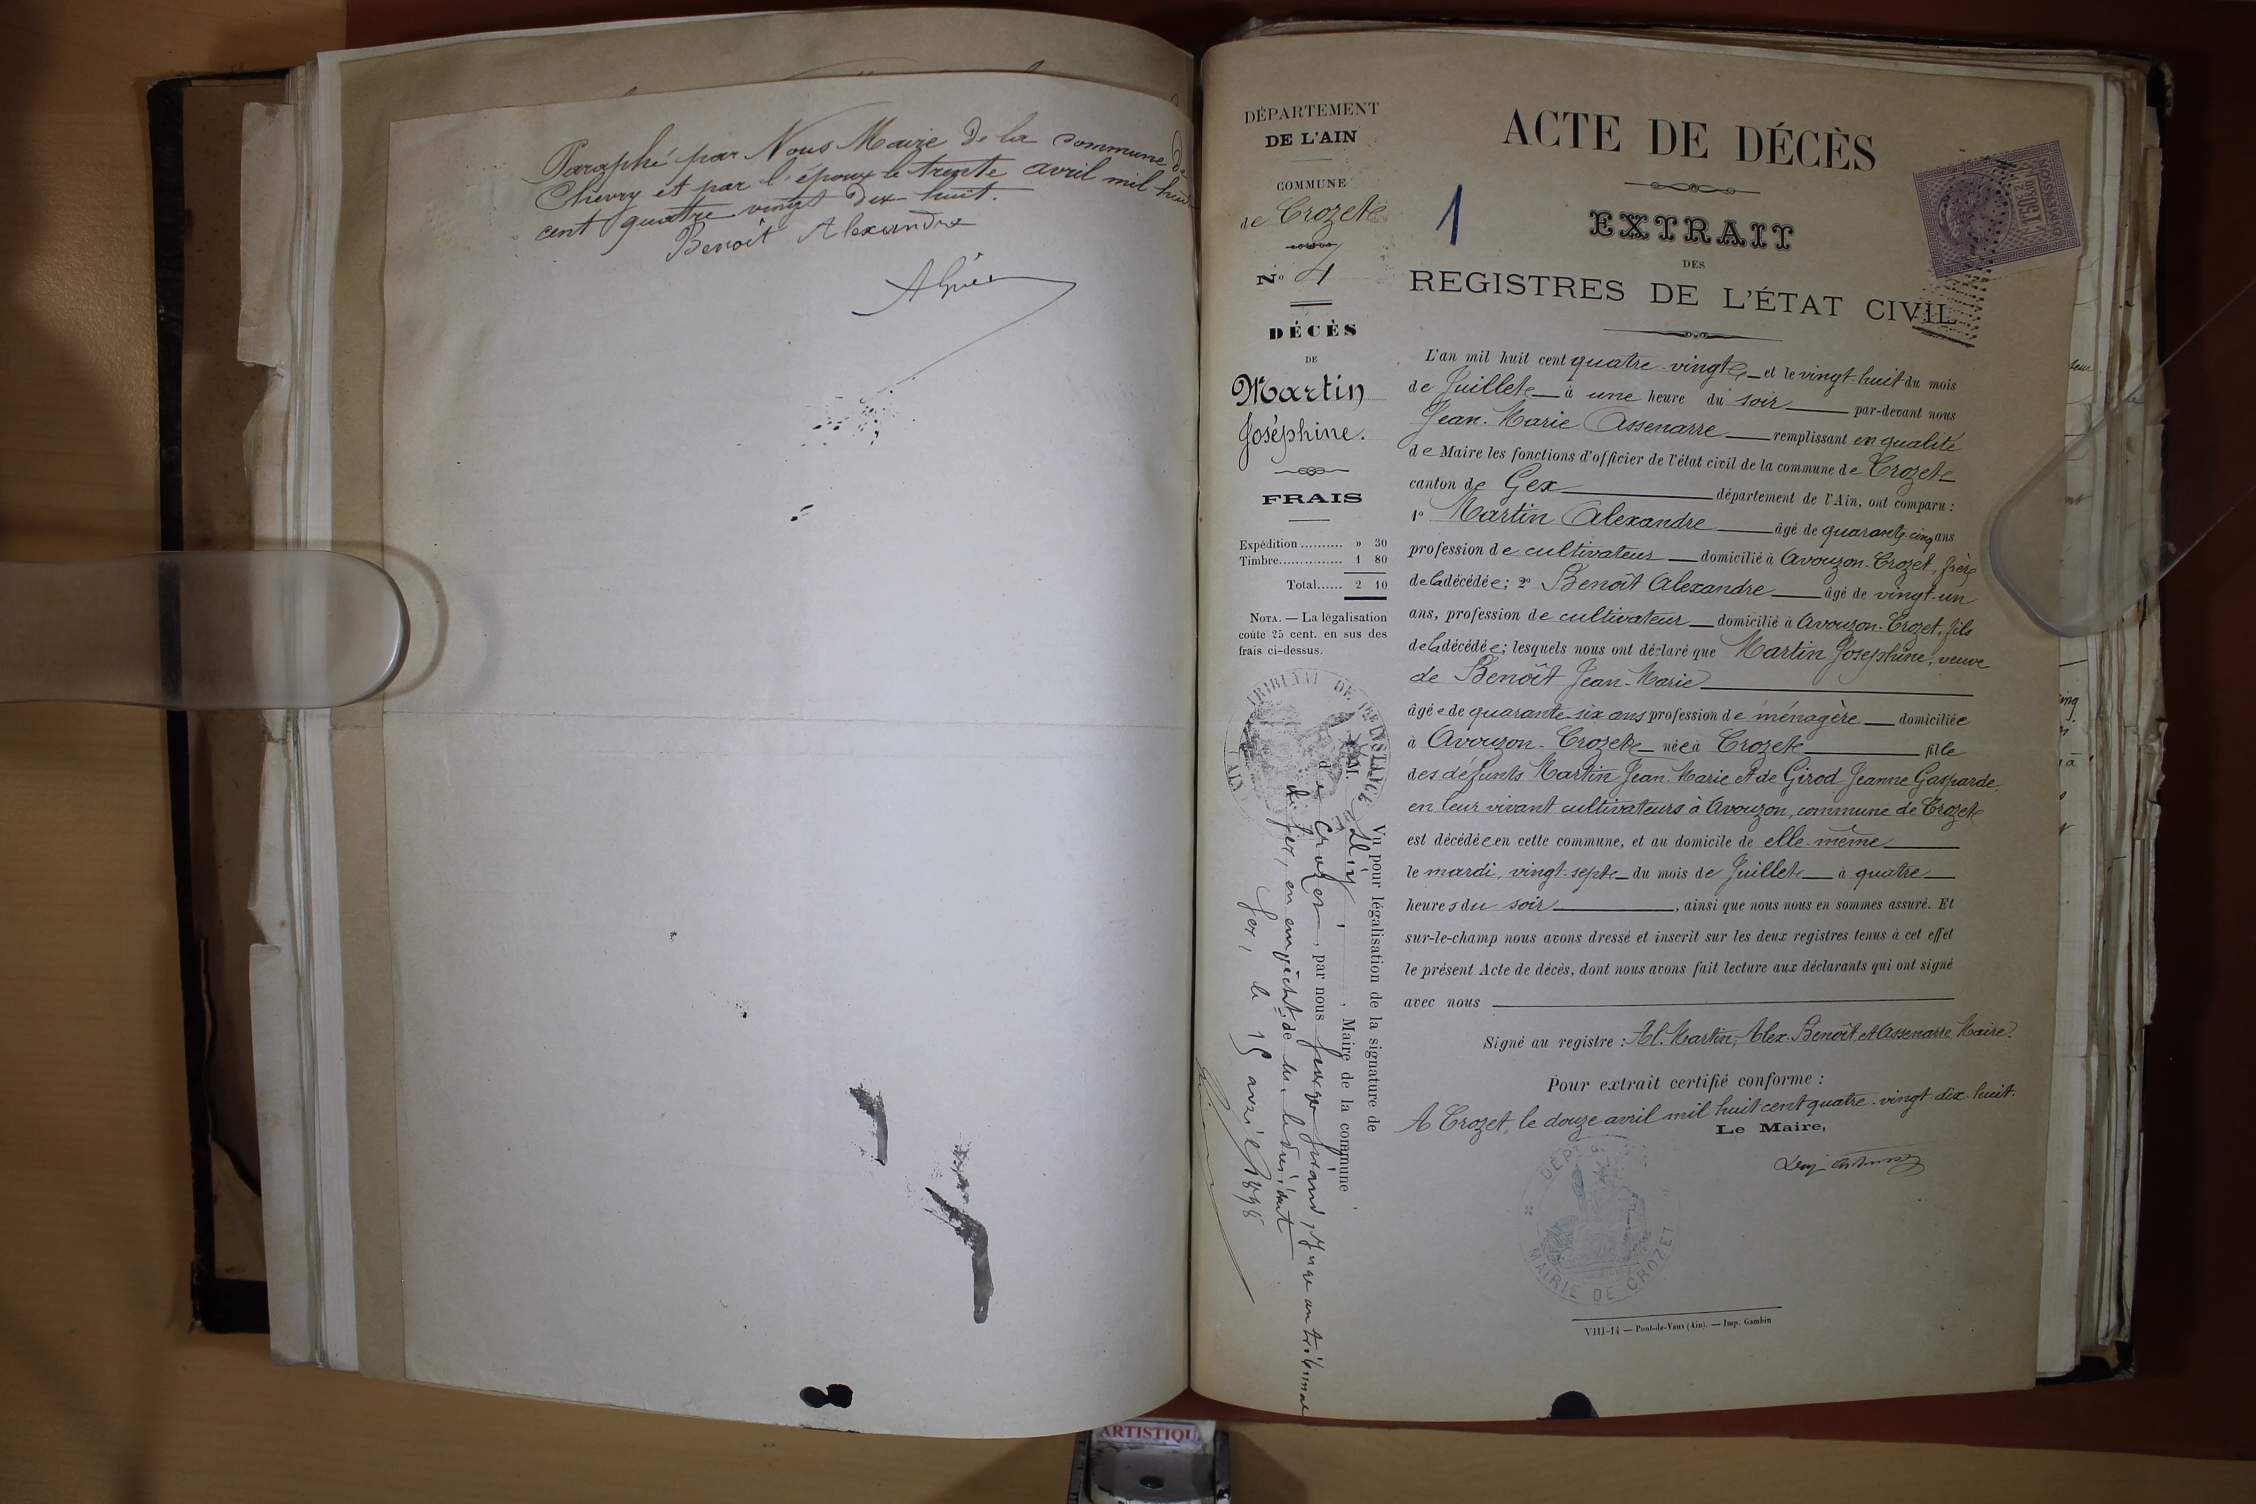 Paraphé par Nous Maire de la commune de
Chevry et par l'époux le trente avril mil huit
cent quatre vingt dix huit.
Benoit Alexandre
DÉPARTEMENT
DE L'AIN
COMMUNE
de Crozet
No 4
DÉCÈS
DE
Martin
Joséphine.
FRAIS
Expédition .......... » 30
Timbre............... 1 80
Total...... 2 10
NOTA. — La légalisation
coûte 25 cent. en sus des
frais ci-dessus.
TRIBUNAL DE 1RE INSTANCE
AIN
Vu pour légalisation de la signature de
M. Léry, Maire de la commune
de Crozet, par nous George, Juge au tribunal
de Gex, en empècht de M. le Président
Gex, le 15 avril 1898
ACTE DE DÉCÈS
1
EXTRAIT
DES
REGISTRES DE L'ÉTAT CIVIL
L'an mil huit cent quatre-vingt et le vingt-huit du mois
de Juillet à une heure du soir par-devant nous
Jean-Marie Assenarre remplissant en qualité
de Maire les fonctions d'officier de l'état civil de la commune de Crozet
canton de Gex département de l'Ain, ont comparu :
1o Martin Alexandre âgé de quarante-cinq ans
profession de cultivateur domicilié à Avouzon-Crozet, frère
de la décédée ; 2o Benoît Alexandre âgé de vingt-un
ans, profession de cultivateur domicilié à Avouzon-Crozet, fils
de la décédée ; lesquels nous ont déclaré que Martin Joséphine, veuve
de Benoît Jean-Marie
âgée de quarante-six ans profession de ménagère domiciliée
à Avouzon-Crozet née à Crozet fille
des défunts Martin Jean-Marie et de Girod Jeanne Gasparde,
en leur vivant cultivateurs à Avouzon, commune de Crozet
est décédée en cette commune, et au domicile de elle-même
le mardi, vingt-sept du mois de Juillet à quatre
heures du soir, ainsi que nous nous en sommes assuré. Et
sur-le-champ nous avons dressé et inscrit sur les deux registres tenus à cet effet
le présent Acte de décès, dont nous avons fait lecture aux déclarants qui ont signé
avec nous
Signé au registre : Al. Martin, Alex. Benoît, et Assenarre, Maire.
Pour extrait certifié conforme :
A Crozet, le douze avril mil huit cent quatre-vingt-dix-huit.
Le Maire,
MAIRIE DE CROZET
VIII-14 — Pont-de-Vaux (Ain). — Imp. Gambin
ARTISTIQU